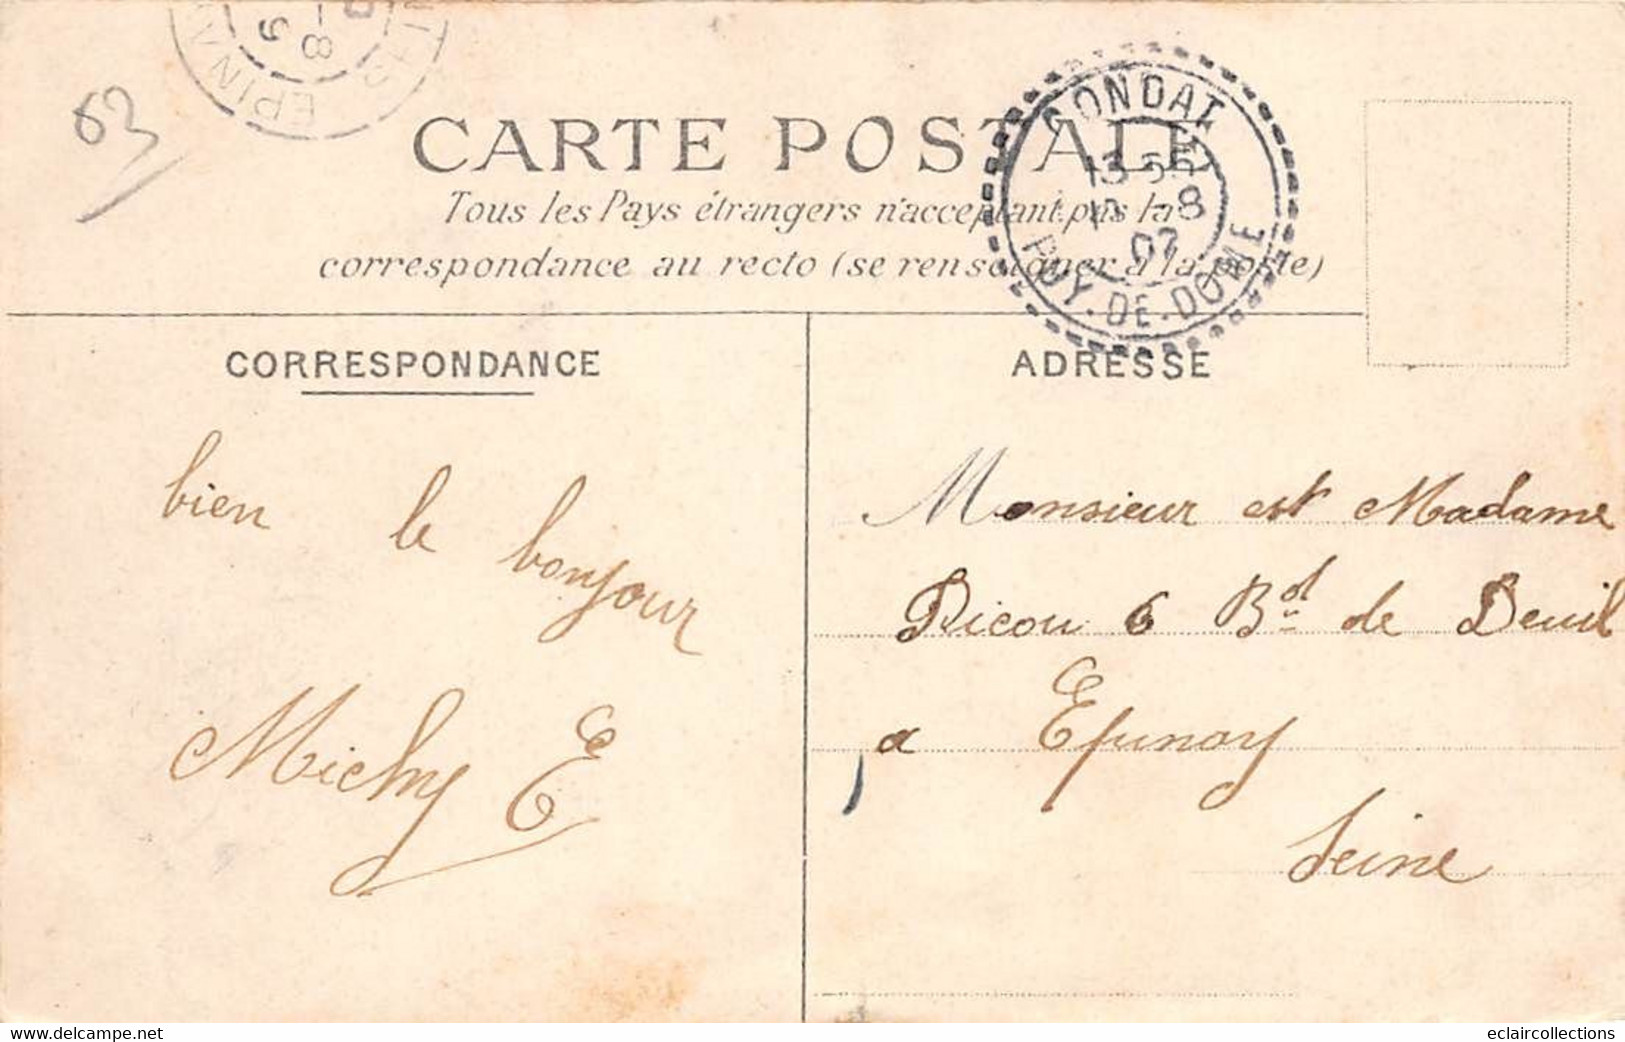 63
EPINAY
8
CARTE POSTALE
Tous les Pays étrangers n'acceptant pas la
correspondance au recto (se renseigner à la Poste)
CONDAT
13 55
-8
07
PUY-DE-DOME
CORRESPONDANCE
ADRESSE
bien le bonjour
Michy E
Monsieur et Madame
Picou 6 Bd de Deuil
a Epinay
Seine
www.delcampe.net
eclaircollections